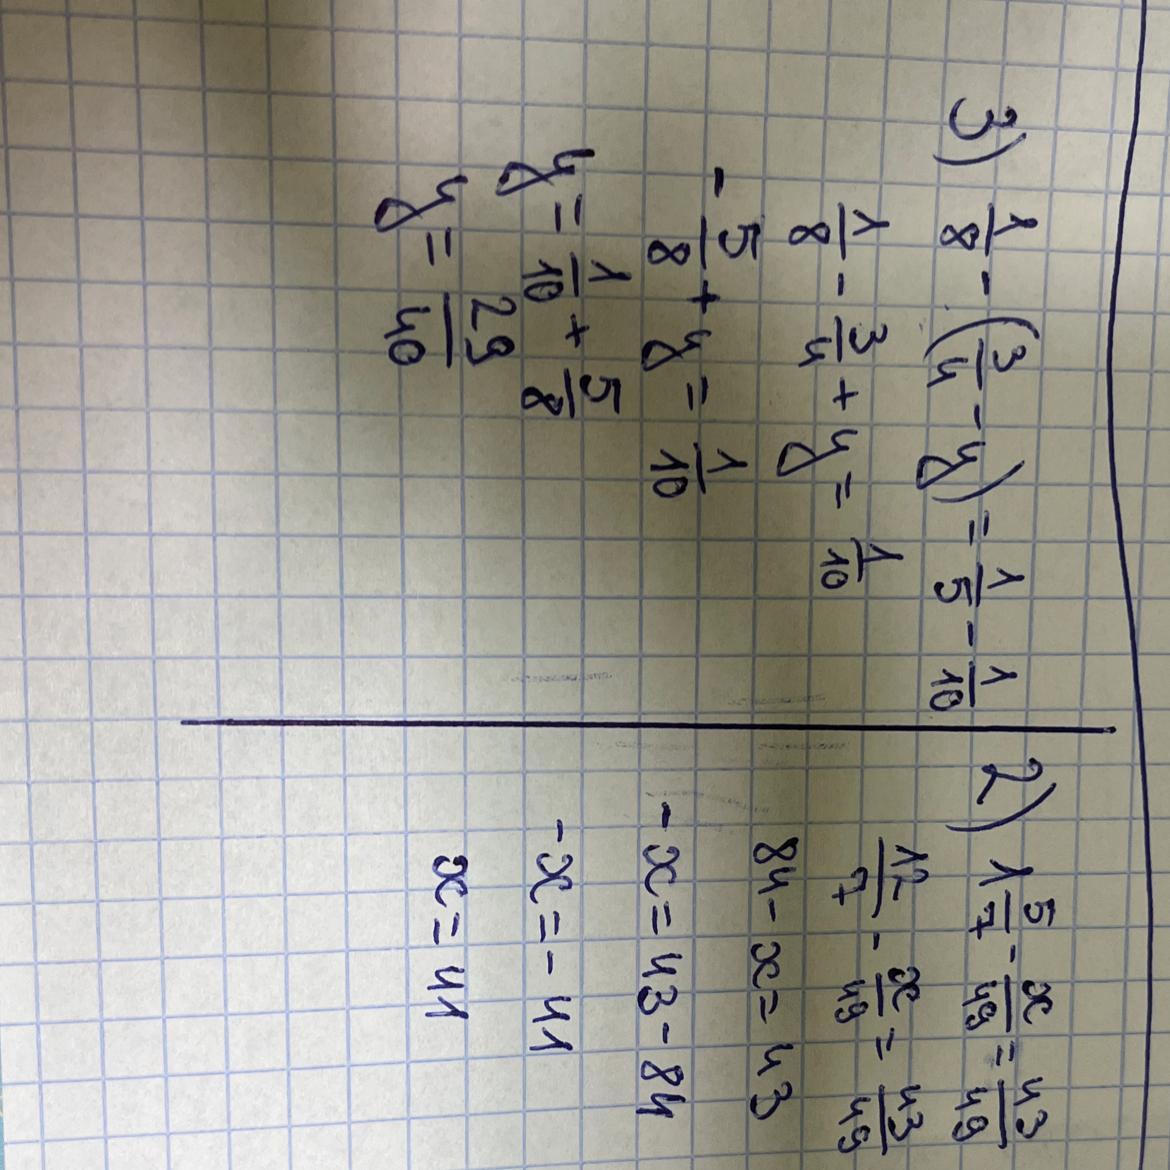 3) 1/8 - (3/4 - y) = 1/5 - 1/10
1/8 - 3/4 + y = 1/10
- 5/8 + y = 1/10
y = 1/10 + 5/8
y = 29/40
2) 1 5/7 - x/49 = 43/49
12/7 - x/49 = 43/49
84 - x = 43
- x = 43 - 84
- x = - 41
x = 41